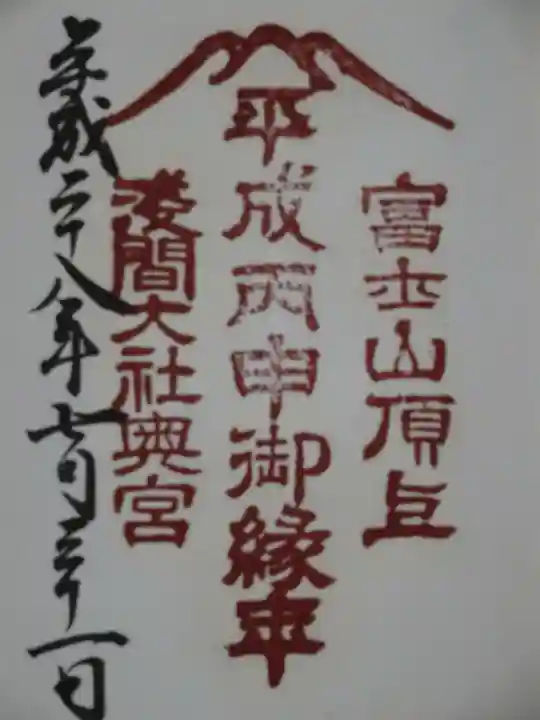 富士山頂上
平成丙申御縁年
浅間大社奥宮
平成二十八年七月三十一日